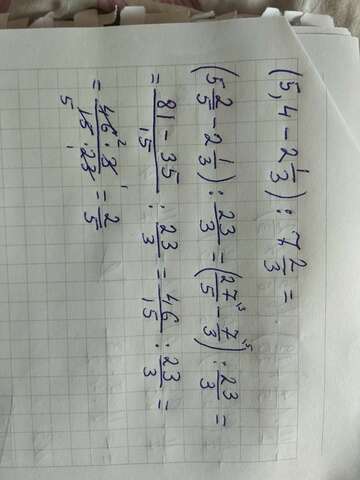 (5,4 - 2 1/3) : 7 2/3 =
(5 2/5 - 2 1/3) : 23/3 = (27/5 ³ - 7/3 ⁵) : 23/3 =
= (81 - 35)/15 : 23/3 = 46/15 : 23/3 =
= (46 ² · 3 ¹)/(15 ₅ · 23 ₁) = 2/5